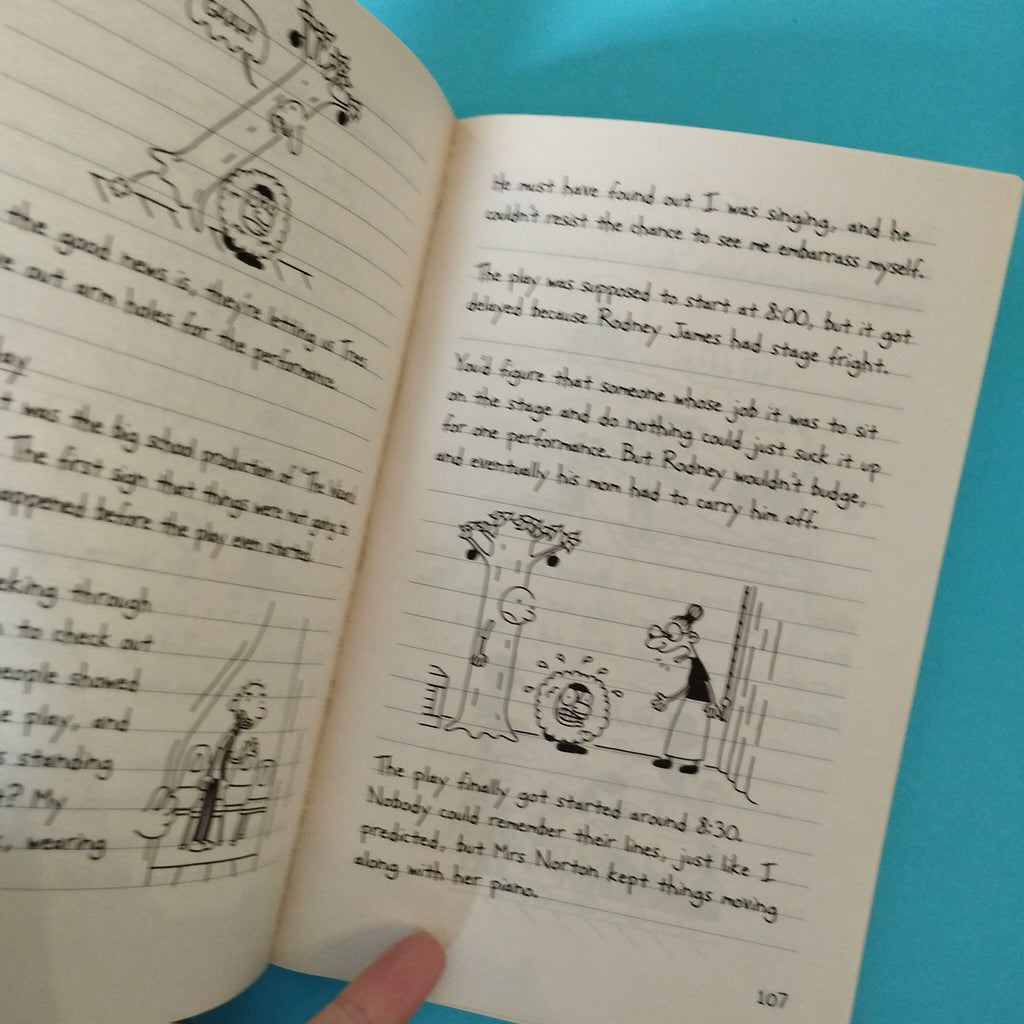 the good news is, they're letting us Trees
out arm holes for the performance.
was the big school production of "The
The first sign that things were not going
before the play even started.
through
to check out
showed
play, and
standing
My
wearing
He must have found out I was singing, and he
couldn't resist the chance to see me embarrass myself.
The play was supposed to start at 8:00, but it got
delayed because Rodney James had stage fright.
You'd figure that someone whose job it was to sit
on the stage and do nothing could just suck it up
for one performance. But Rodney wouldn't budge,
and eventually his mom had to carry him off.
The play finally got started around 8:30.
Nobody could remember their lines, just like I
predicted, but Mrs. Norton kept things moving
along with her piano.
107